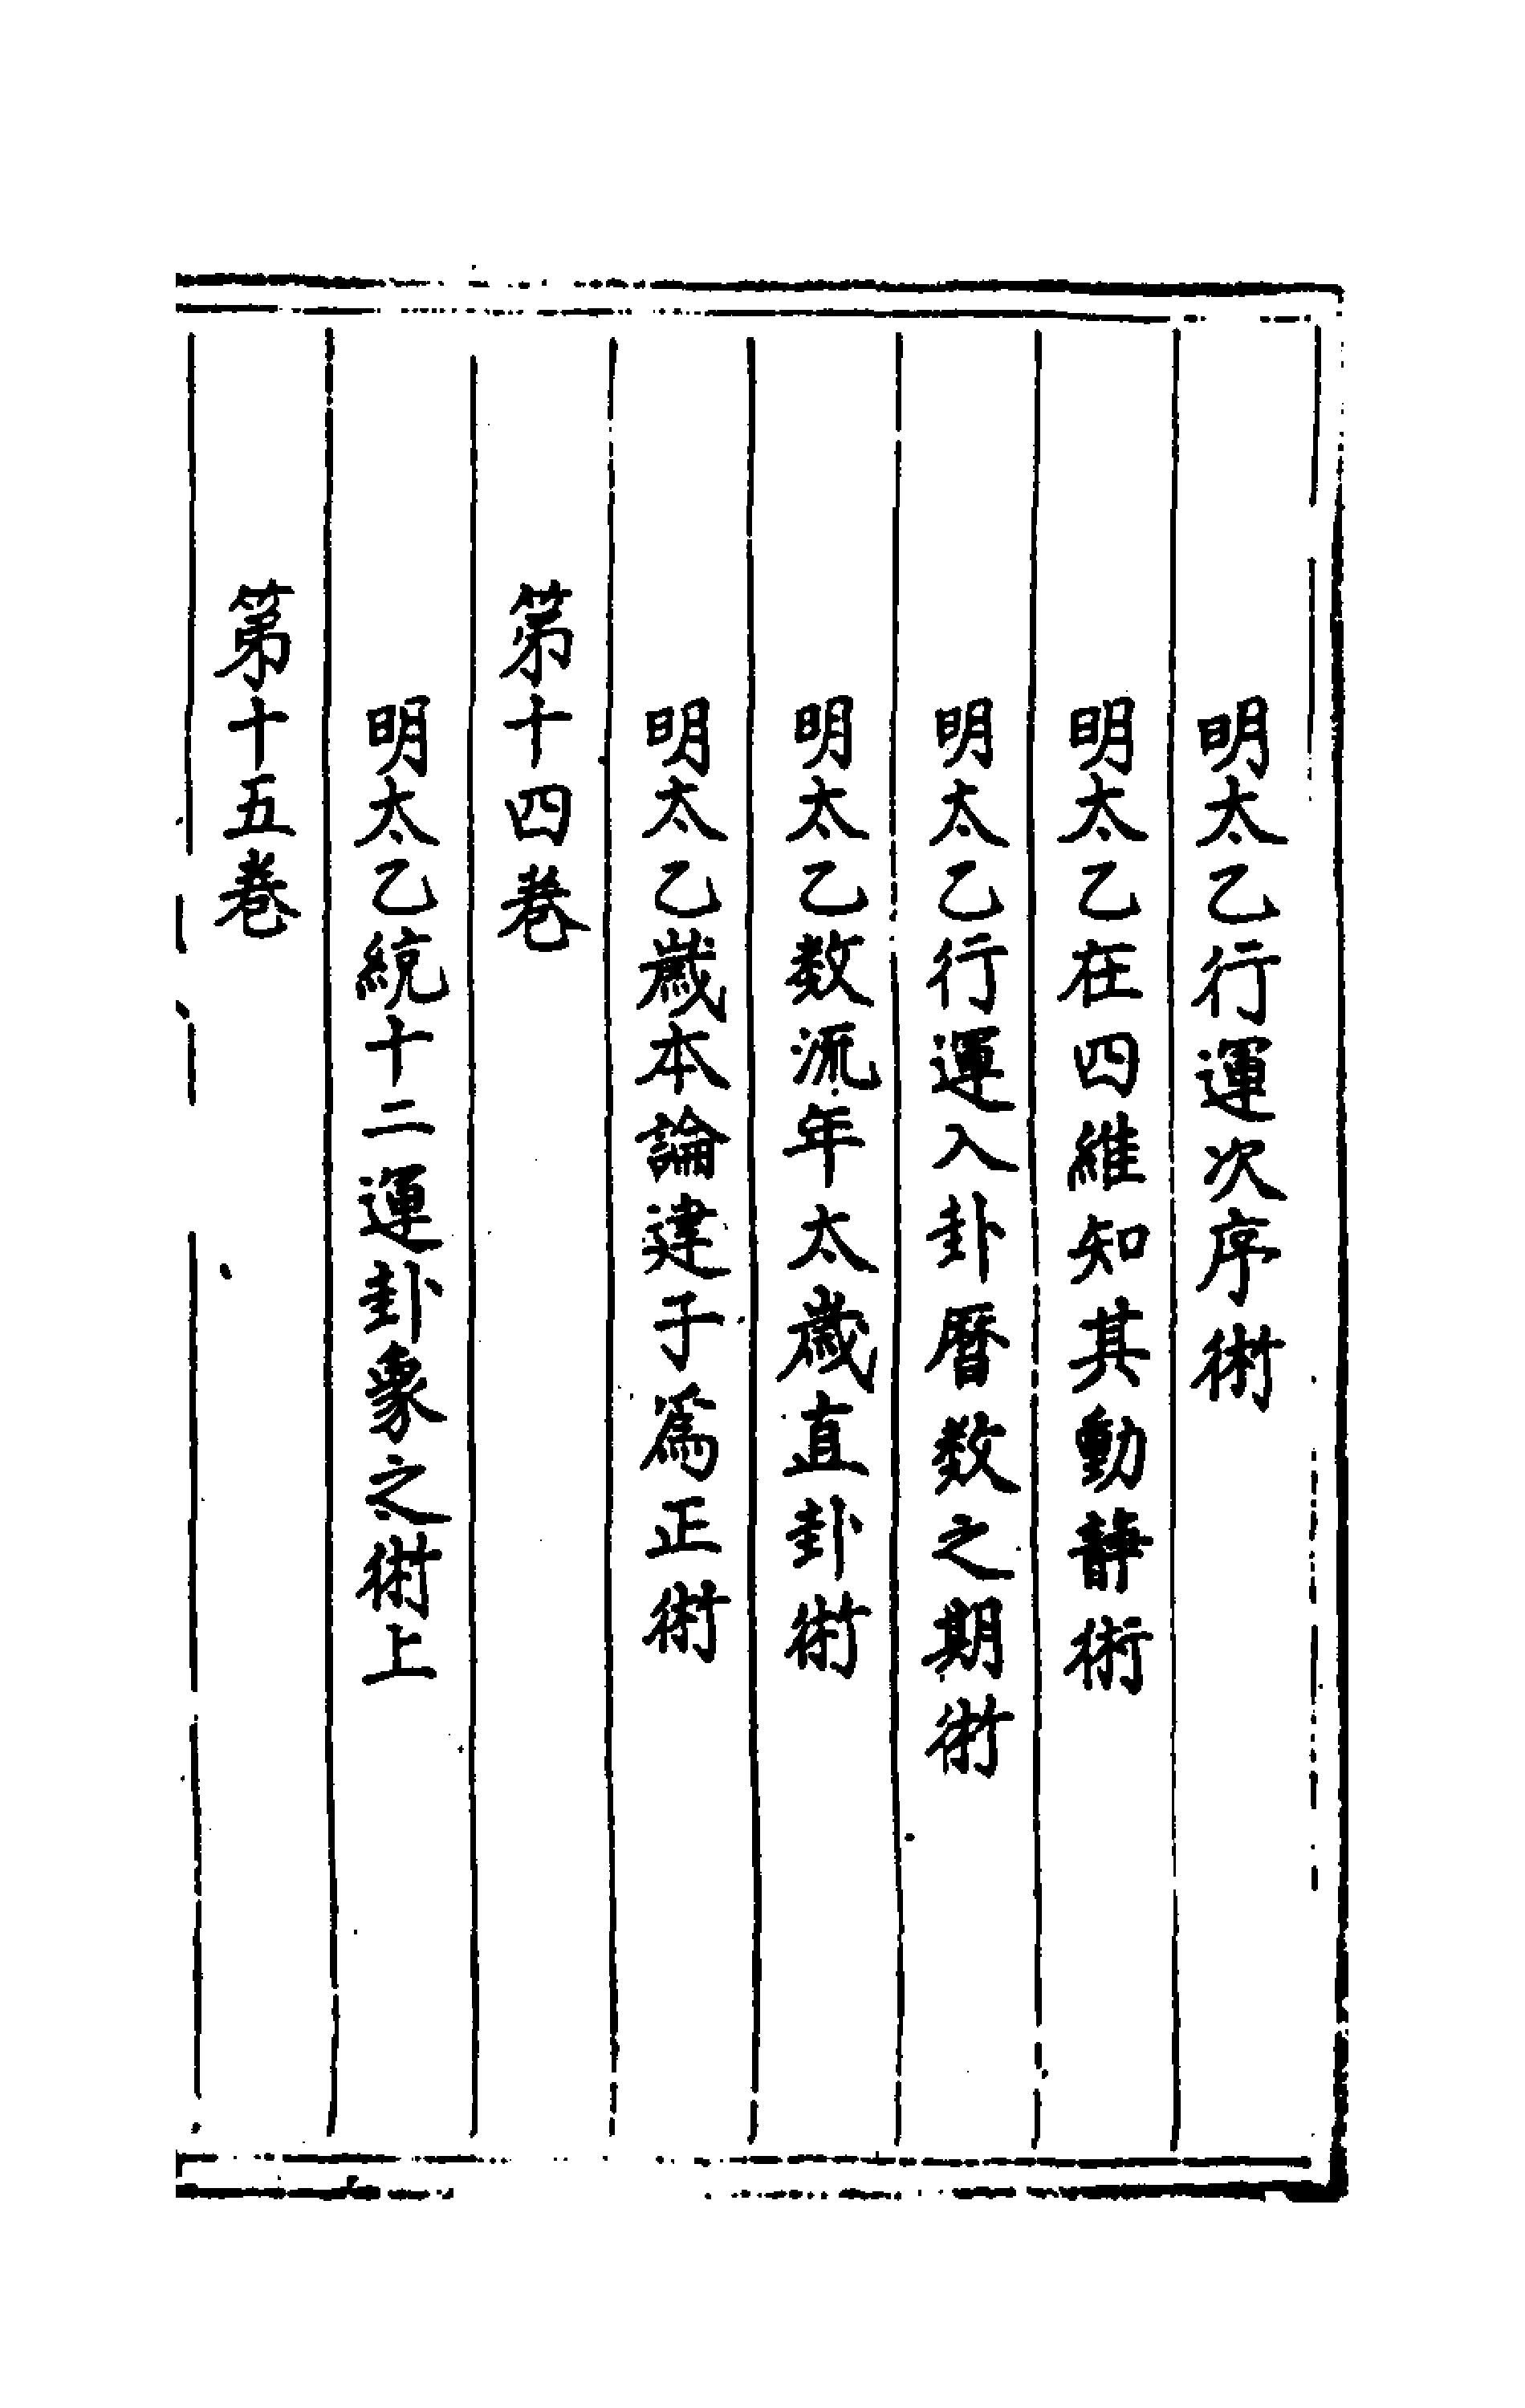 明太乙行運次序術
明太乙在四維知其動靜術
明太乙行運入卦曆数之期術
明太乙数流年太歲直卦術
明太乙歲本論建子爲正術
第十四卷
明太乙統十二運卦象之術上
第十五卷